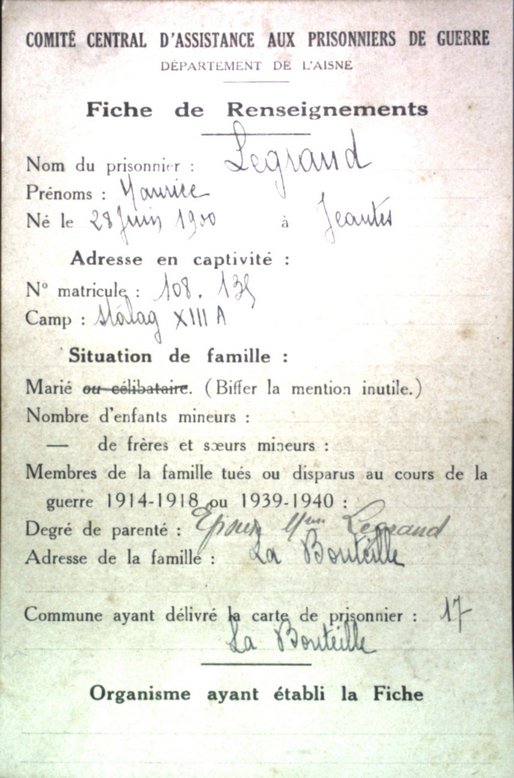 COMITÉ CENTRAL D'ASSISTANCE AUX PRISONNIERS DE GUERRE
DÉPARTEMENT DE L'AISNE
Fiche de Renseignements
Nom du prisonnier : Legrand
Prénoms : Maurice
Né le 28 Juin 1900 à Jeantes
Adresse en captivité :
N° matricule : 108. 135
Camp : Stalag XIII A
Situation de famille :
Marié ou célibataire. (Biffer la mention inutile.)
Nombre d'enfants mineurs :
— de frères et sœurs mineurs :
Membres de la famille tués ou disparus au cours de la
guerre 1914-1918 ou 1939-1940 :
Degré de parenté : Epoux Mme Legrand
Adresse de la famille : La Bouteille
Commune ayant délivré la carte de prisonnier : 17
La Bouteille
Organisme ayant établi la Fiche